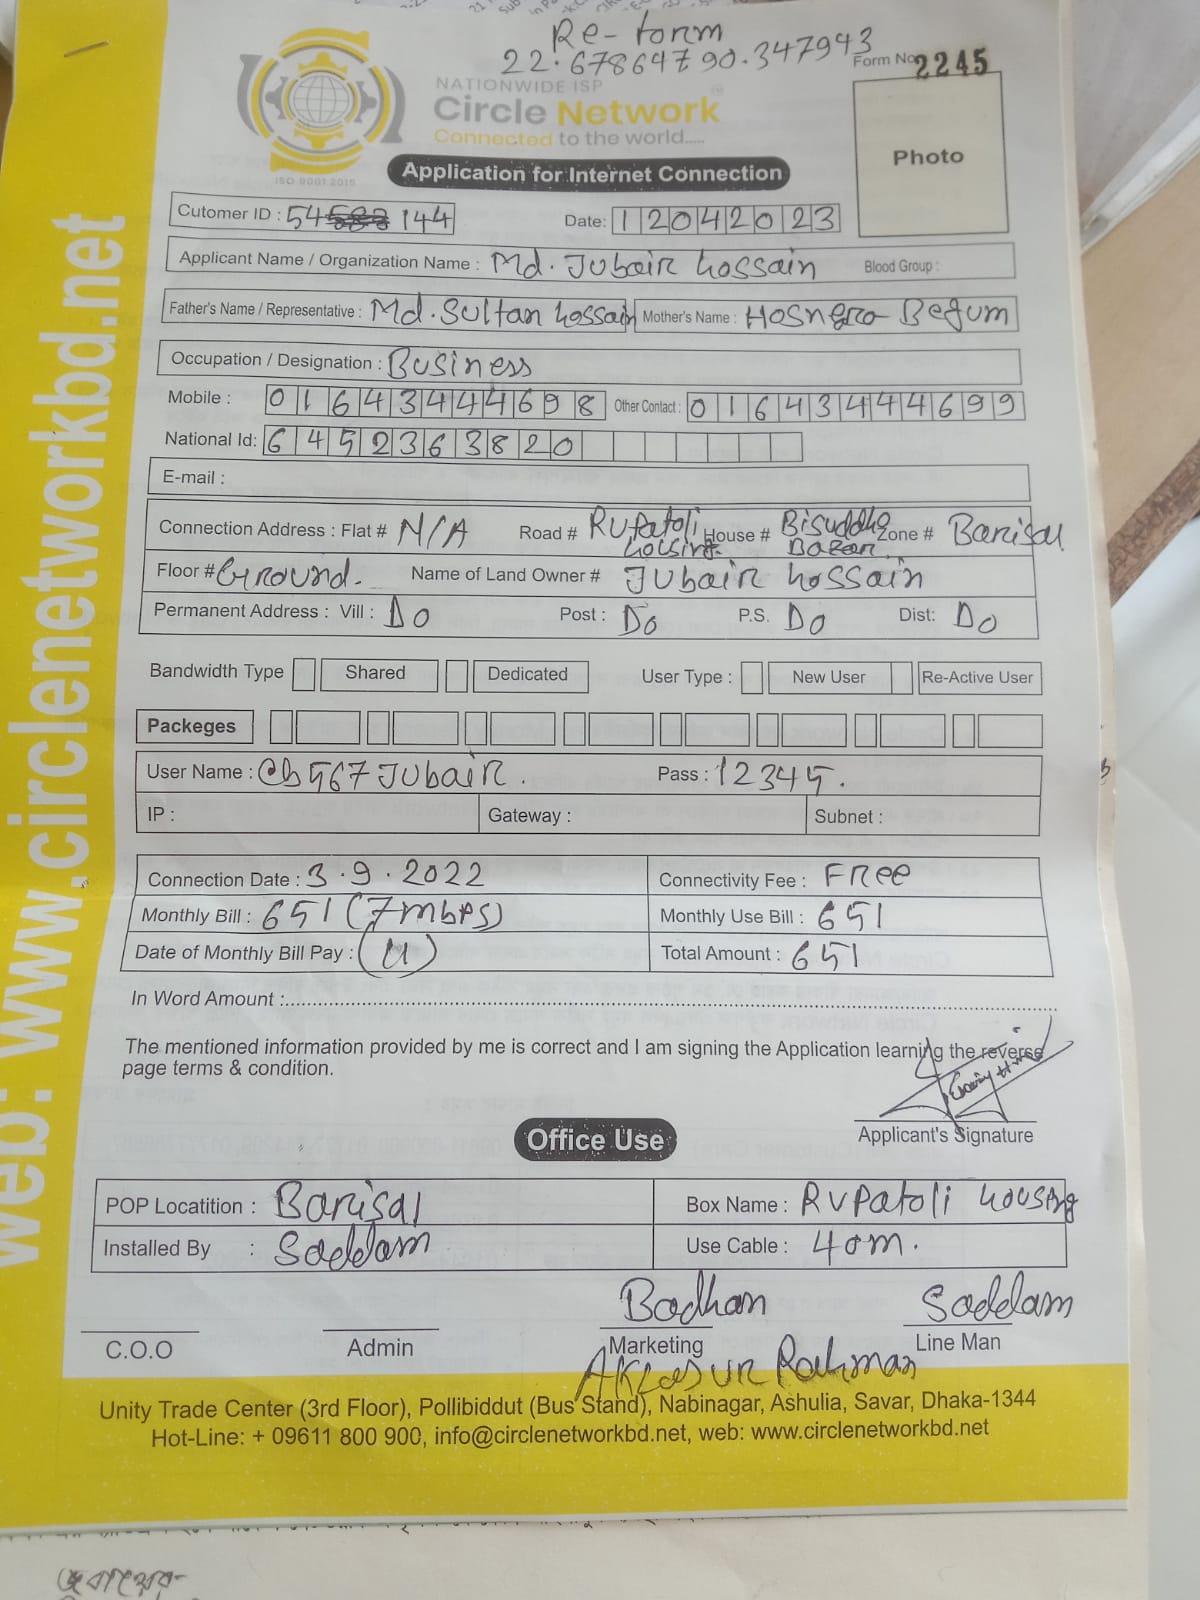 Re-form
22.67864790.347943
Form No. 2245
NATIONWIDE ISP
Circle Network
Connected to the world.....
ISO 9001:2015
Photo
Application for Internet Connection
Cutomer ID : 54 144 Date: 12042023
Applicant Name / Organization Name : Md. Jubair Hossain Blood Group :
Father's Name / Representative : Md. Sultan Hossain Mother's Name : Hosnera Begum
Occupation / Designation : Business
Mobile : 01643444698 Other Contact : 01643444699
National Id: 6452363820
E-mail :
Connection Address : Flat # N/A Road # Rupatoli Housing. House # Bisuddho Bazar Zone # Barisal
Floor # Ground. Name of Land Owner # Jubair Hossain
Permanent Address : Vill : Do Post : Do P.S. Do Dist: Do
Bandwidth Type Shared Dedicated User Type : New User Re-Active User
Packeges
User Name : Cb567Jubair. Pass : 12345.
IP : Gateway : Subnet :
Connection Date : 3.9.2022 Connectivity Fee : Free
Monthly Bill : 651 (7mbps) Monthly Use Bill : 651
Date of Monthly Bill Pay : Total Amount : 651
In Word Amount :
The mentioned information provided by me is correct and I am signing the Application learning the reverse
page terms & condition.
Applicant's Signature
Office Use
POP Locatition : Barisal Box Name : Rupatoli Housing
Installed By : Saddam Use Cable : 40m.
Badhan Saddam
C.O.O Admin Marketing Line Man
Rahman
Unity Trade Center (3rd Floor), Pollibiddut (Bus Stand), Nabinagar, Ashulia, Savar, Dhaka-1344
Hot-Line: + 09611 800 900, info@circlenetworkbd.net, web: www.circlenetworkbd.net
web: www.circlenetworkbd.net